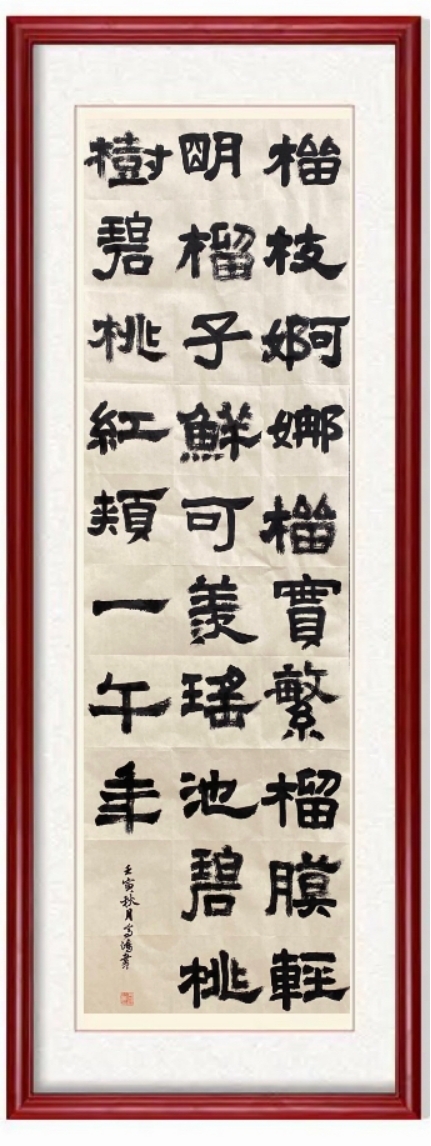 榴枝婀娜榴實繁榴膜輕
明榴子鮮可羨瑤池碧桃
樹碧桃紅頰一午年
壬寅秋月鴻書